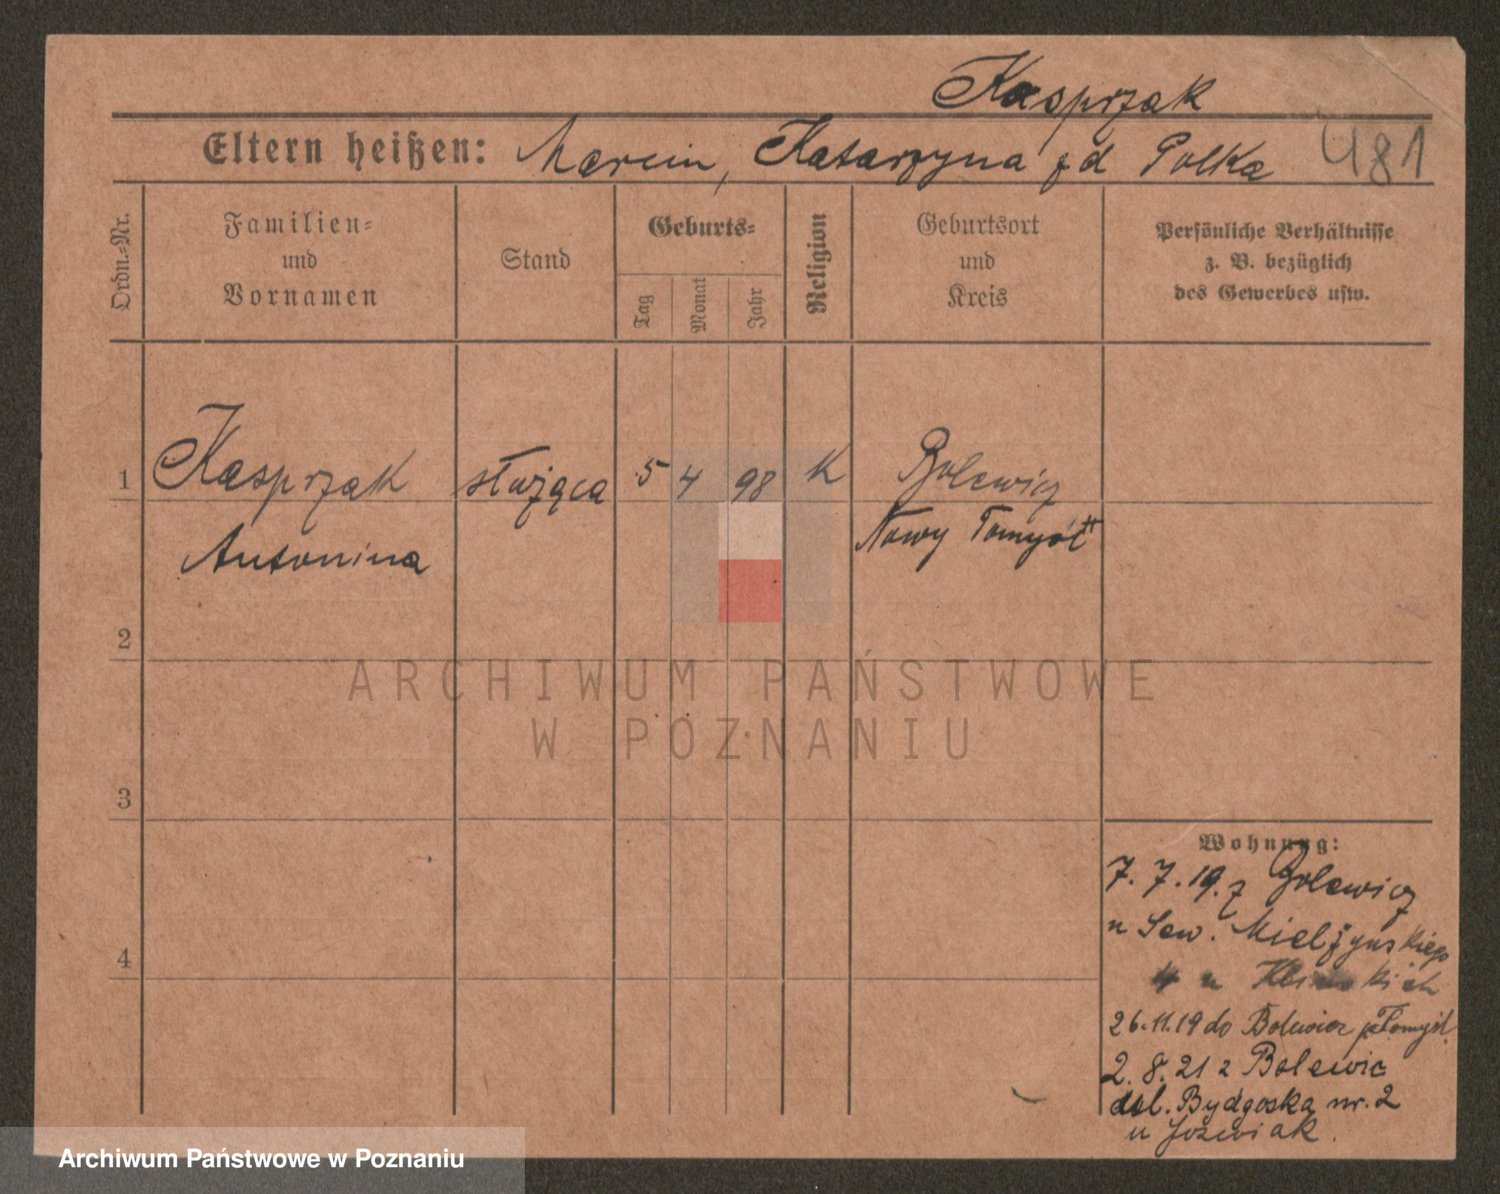 Kasprzak
Eltern heißen: Marcin, Katarzyna zd Polka 481
Ordn.-Nr.
Familien- und Vornamen
Stand
Geburts-
Tag
Monat
Jahr
Religion
Geburtsort und Kreis
Persönliche Verhältnisse
z. B. bezüglich
des Gewerbes usw.
1 Kasprzak służąca 5 4 98 K Bolewicz
Antonina Nowy Tomyśl
2
ARCHIWUM PAŃSTWOWE
W POZNANIU
3
Wohnung:
7. 7. 19. z Bolewicz
u Sew. Mielżyńskiego
4 u
26.11.19 do Bolewicz Tomyśl.
2. 8. 21 z Bolewic
Bydgoska nr. 2
u Jóźwiak.
4
Archiwum Państwowe w Poznaniu